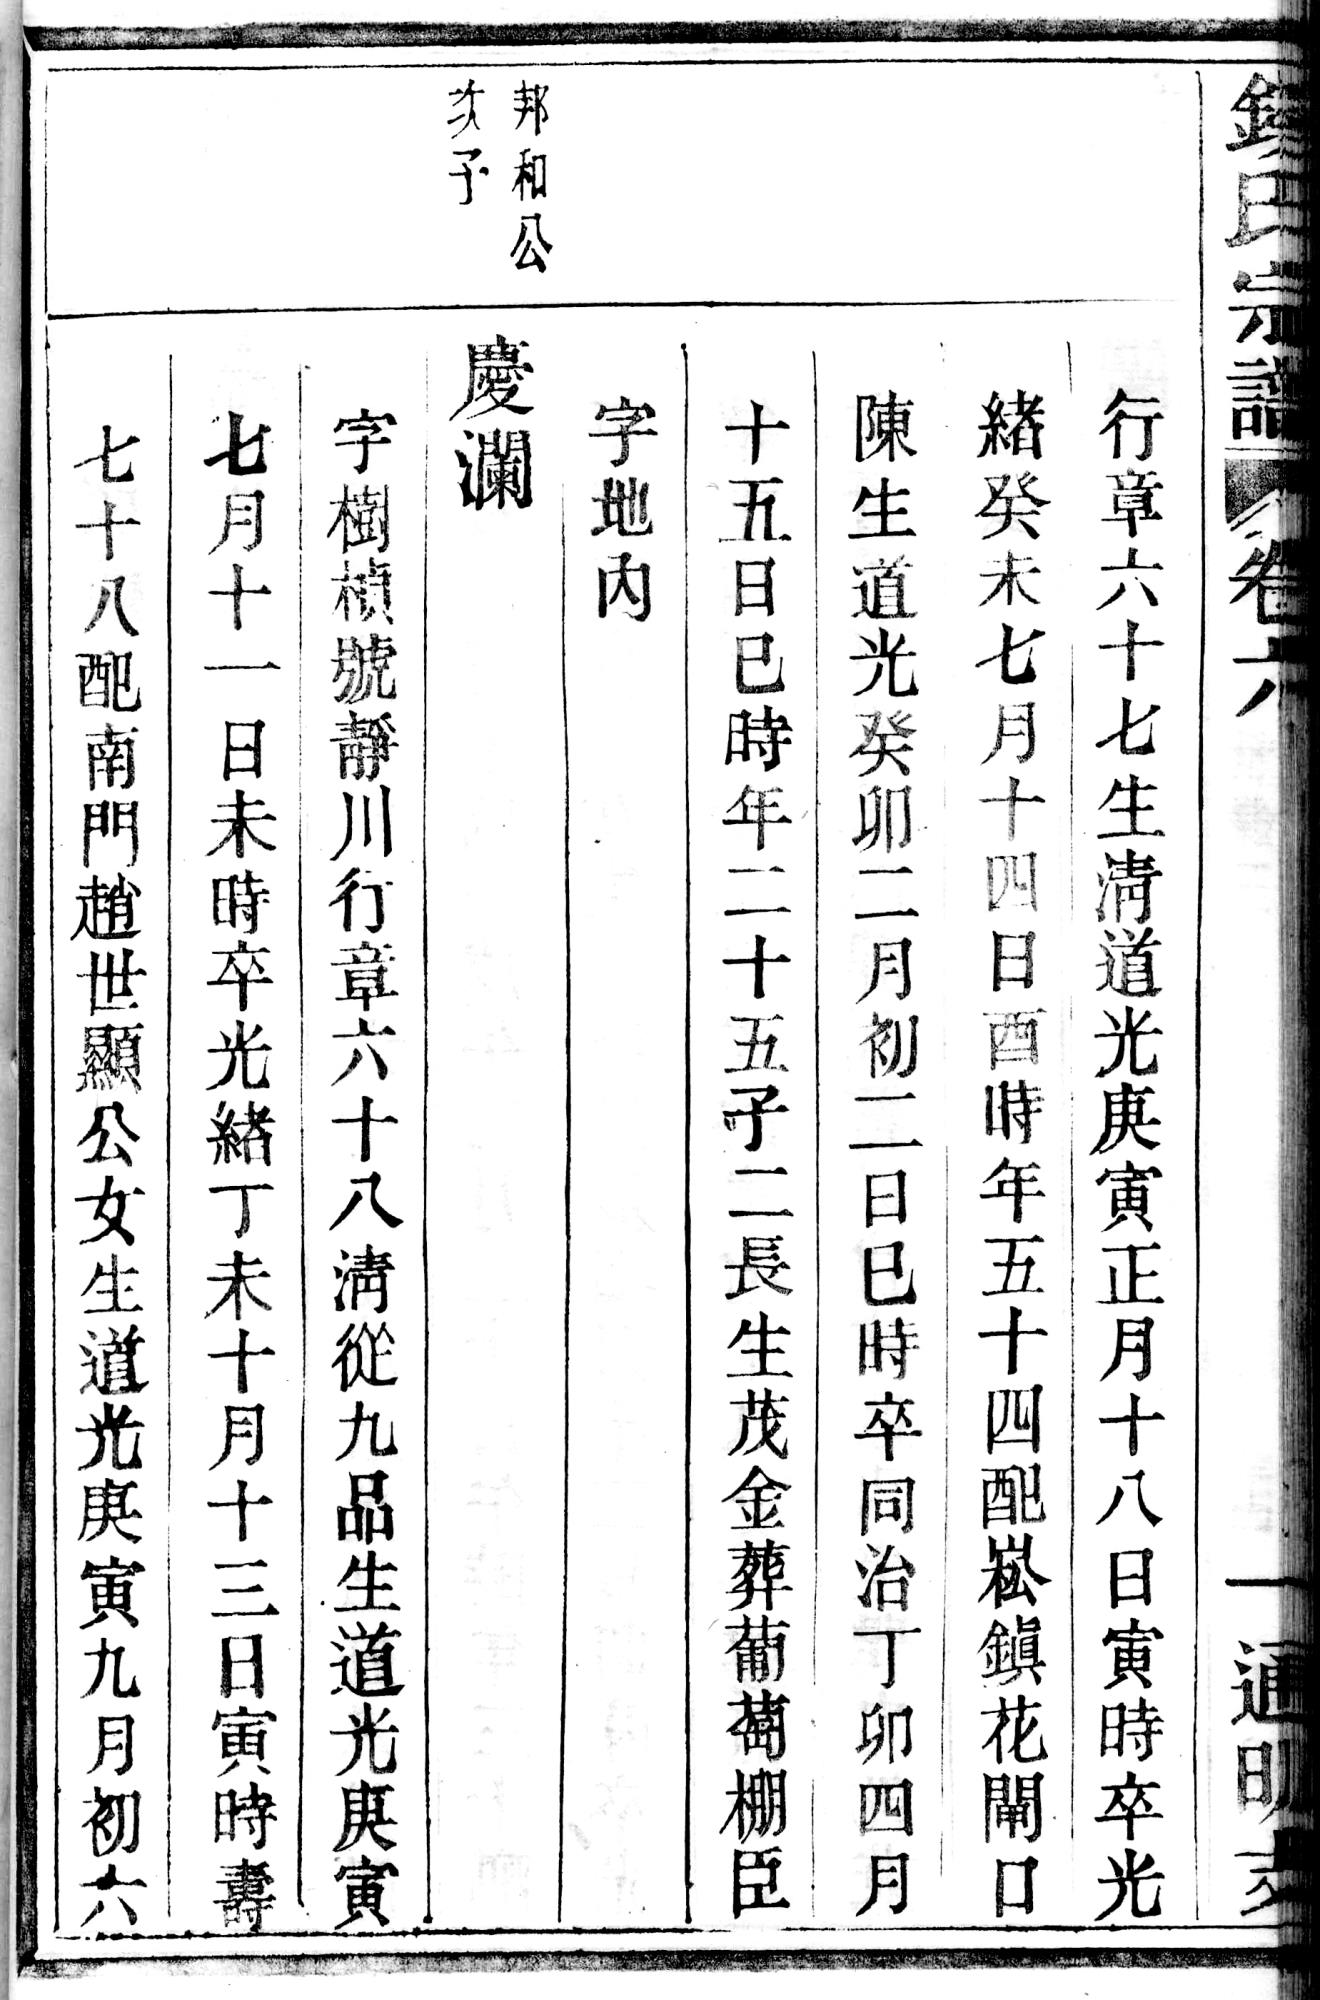 氏宗譜
卷六
一
通明支
行章六十七生淸道光庚寅正月十八日寅時卒光
緒癸未七月十四日酉時年五十四配崧鎭花閘口
陳生道光癸卯二月初二日巳時卒同治丁卯四月
十五日巳時年二十五子二長生茂金葬葡萄棚臣
字地內
邦和公
次子
慶瀾
字樹楨號靜川行章六十八淸從九品生道光庚寅
七月十一日未時卒光緒丁未十月十三日寅時壽
七十八配南門趙世顯公女生道光庚寅九月初六